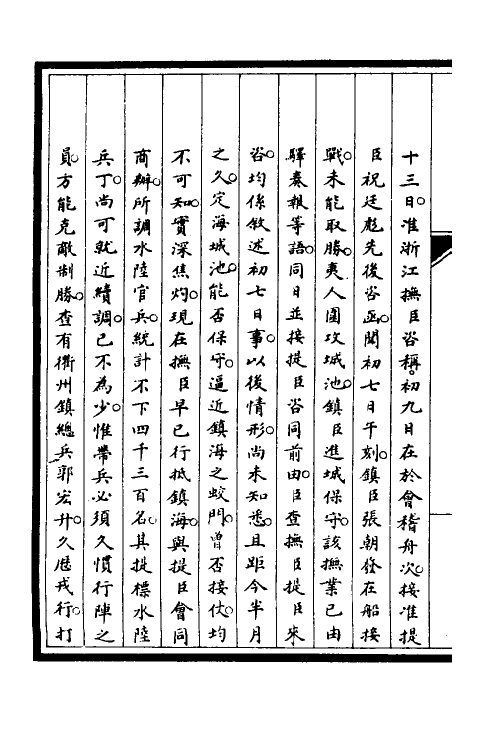 十三日。准浙江撫臣咨稱。初九日在於會稽舟次。接准提
臣祝廷彪先後咨函。聞初七日午刻。鎮臣張朝發在船接
戰。未能取勝。夷人圍攻城池。鎮臣進城保守。該撫業已由
驛奏報等語。同日並接提臣咨同前由。臣查撫臣提臣來
咨。均係敘述初七日事。以後情形。尚未知悉。且距今半月
之久。定海城池。能否保守。逼近鎮海之蛟門。曾否接仗。均
不可知。實深焦灼。現在撫臣早已行抵鎮海。與提臣會同
商辦。所調水陸官兵。統計不下四千三百名。其提標水陸
兵丁。尚可就近續調。已不為少。惟帶兵必須久慣行陣之
員。方能克敵制勝。查有衢州鎮總兵郭宏升。久歷戎行。打